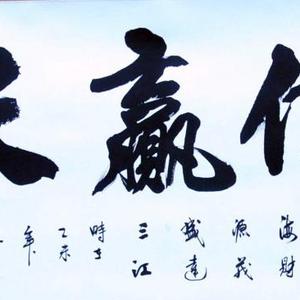 赢
海財
源茂
盛達
三江
時于
乙未
年